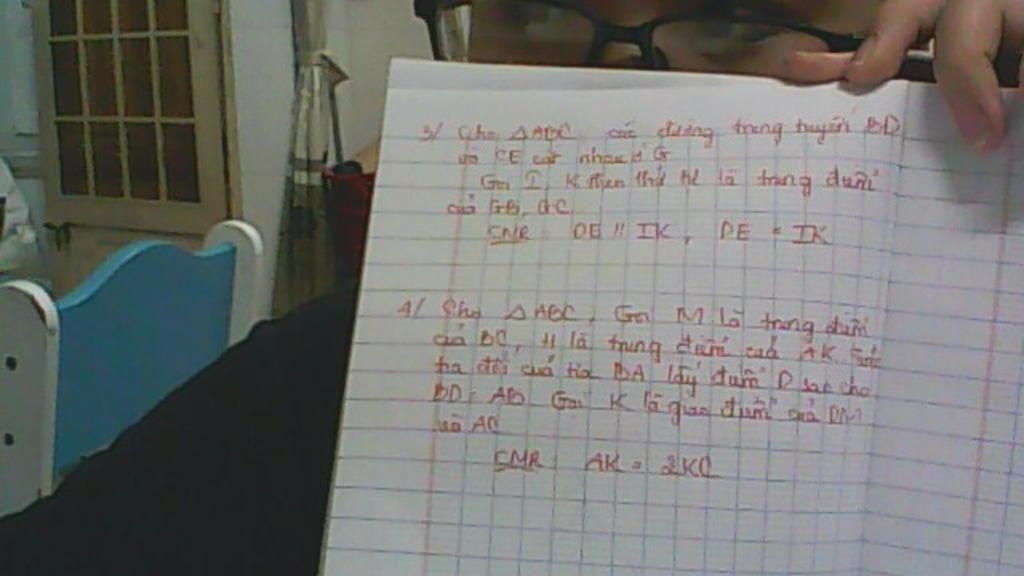 3/ Cho △ABC các đường trung tuyến BD
và CE cắt nhau ở G
Gọi I, K theo thứ tự là trung điểm
của GB, GC
CMR DE // IK, DE = IK
4/ Cho △ABC, Gọi M là trung điểm
của BC, H là trung điểm của AK trên
tia đối của tia BA lấy điểm D sao cho
BD = AB Gọi K là giao điểm của DM
và AC
CMR: AK = 2KC